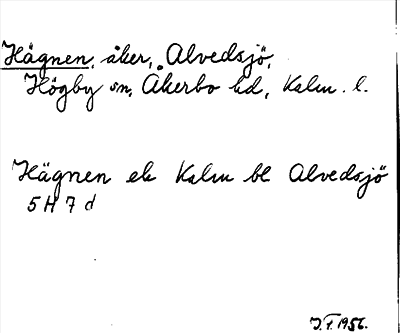 Hägnen, åker, Alvedsjö,
Högby sn, Åkerbo hd, Kalm. l.
Hägnen ek Kalm bl Alvedsjö
5 H 7 d
J.F. 1956.